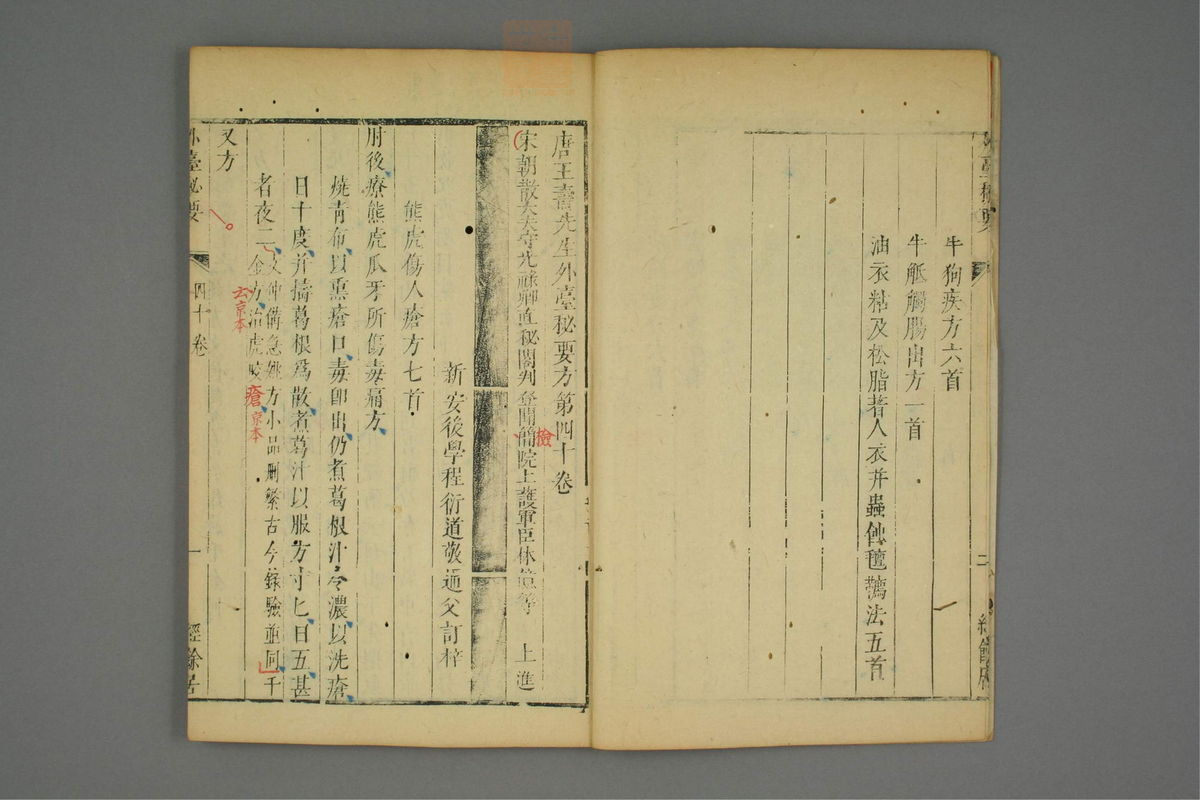 牛狗疾方六首
牛觝觸腸出方一首
油衣粘及松脂著人衣并蟲蝕氊䙝法五首
二
經餘居
唐王燾先生外臺秘要方第四十卷
宋朝散大夫守光祿卿直秘閣判登聞簡院上護軍臣林億等 上進
檢
新安後學程衍道敬通父訂梓
熊虎傷人瘡方七首
肘後療熊虎爪牙所傷毒痛方
燒青布以熏瘡口毒即出仍煮葛根汁令濃以洗瘡
日十度并擣葛根為散煮葛汁以服方寸匕日五甚
者夜二文仲備急姚方小品刪繁古今錄驗並同千
金方治虎咬
云京本
瘡京本
又方
外臺秘要
四十卷
一
經餘居